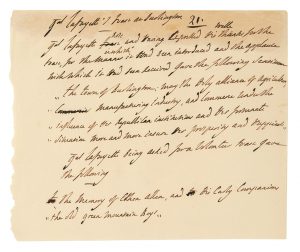 Gl Lafayette's toast at Burlington 21.
Gl Lafayette and many reported his thanks for the with
toast, for the manner in which it had been introduced and the applause
with which it had been received gave the following Sentiment
"The town of Burlington, may the holy alliance of Agriculture,
manufacturing Industry, and Commerce under the
influence of the republican institutions and the
situation more and more insure its prosperity and happiness"
Gl Lafayette being asked for a Volunteer toast gave
the following
to the Memory of Ethan Allen, and to his Early Companions
the Old green mountain boys"